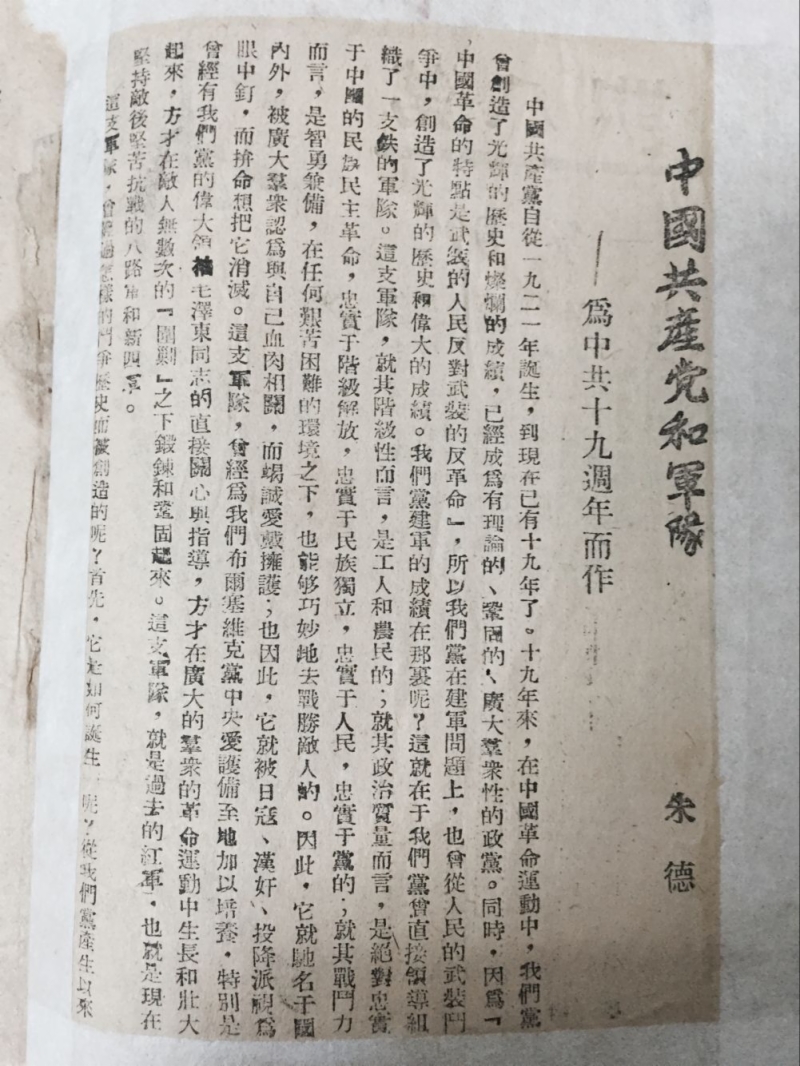 中國共產党和軍隊
——爲中共十九週年而作
朱德
中國共產黨自從一九二一年誕生，到現在已有十九年了。十九年來，在中國革命運動中，我們黨
曾創造了光輝的歷史和燦爛的成績，已經成爲有理論的、鞏固的、廣大羣衆性的政黨。同時，因爲『
中國革命的特點是武裝的人民反對武裝的反革命』，所以我們黨在建軍問題上，也曾從人民的武裝鬥
爭中，創造了光輝的歷史和偉大的成績。我們黨建軍的成績在那裏呢？這就在于我們黨曾直接領導組
織了一支鉄的軍隊。這支軍隊，就其階級性而言，是工人和農民的；就其政治質量而言，是絕對忠實
于中國的民族民主革命，忠實于階級解放，忠實于民族獨立，忠實于人民，忠實于黨的；就其戰鬥力
而言，是智勇兼備，在任何艱苦困難的環境之下，也能够巧妙地去戰勝敵人的。因此，它就馳名于國
內外，被廣大羣衆認爲與自己血肉相關，而竭誠愛戴擁護；也因此，它就被日寇、漢奸、投降派視爲
眼中釘，而拚命想把它消滅。這支軍隊，曾經爲我們布爾塞維克黨中央愛護備至地加以培養，特別是
曾經有我們黨的偉大領袖毛澤東同志的直接關心與指導，方才在廣大的羣衆的革命運動中生長和壯大
起來，方才在敵人無數次的『圍剿』之下鍛鍊和鞏固起來。這支軍隊，就是過去的紅軍，也就是現在
堅持敵後堅苦抗戰的八路軍和新四軍。
這支軍隊，曾經過怎樣的鬥爭歷史而被創造的呢？首先，它是如何誕生 呢？從我們黨產生以來